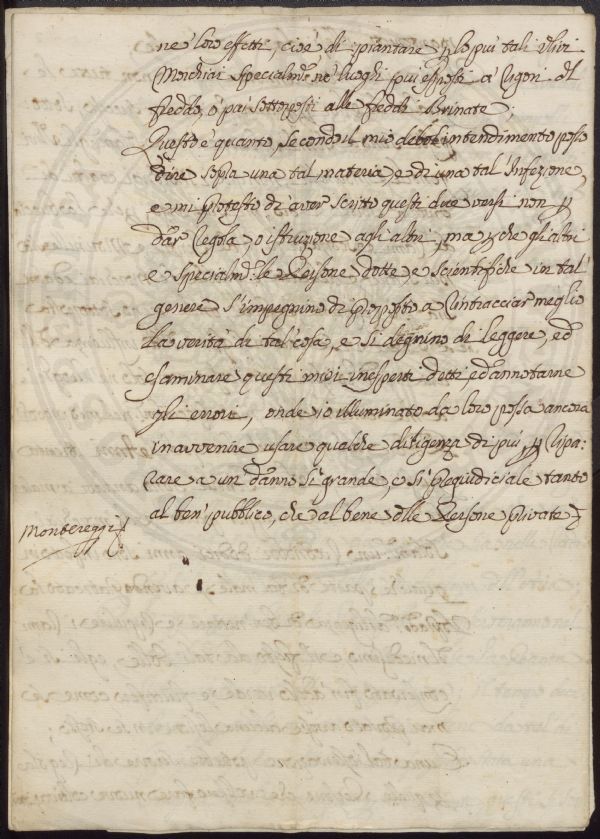 ne loro effetti, cioè di piantare p lo più tali Ulivi
Morchiai specialm:te ne luoghi più esposti a Rigori del
freddo, o pai sottoposti alle fredde Brinate;
Questo è quanto, secondo il mio debol intendimento posso
dire sopra una tal materia, e di una tal Infezione,
e mi protesto di aver scritto questi due versi non p
dar Regola, o istruzione agli altri, ma pche gli altri
e specialm:te le Persone dotte, e scientifiche in tal
genere s'impegnino di proposito a rintracciar meglio
la verità di tal cosa, e si degnino di leggere, ed
esaminare questi miei inesperti detti ed annotarne
gli errori, onde io illuminato da loro possa ancora
in avvenire usare qualche diligenza di più, p ripa:
rare a un danno si grande, e si pregiudiciale tanto
al ben pubblico, che al bene delle Persone private
Montereggi